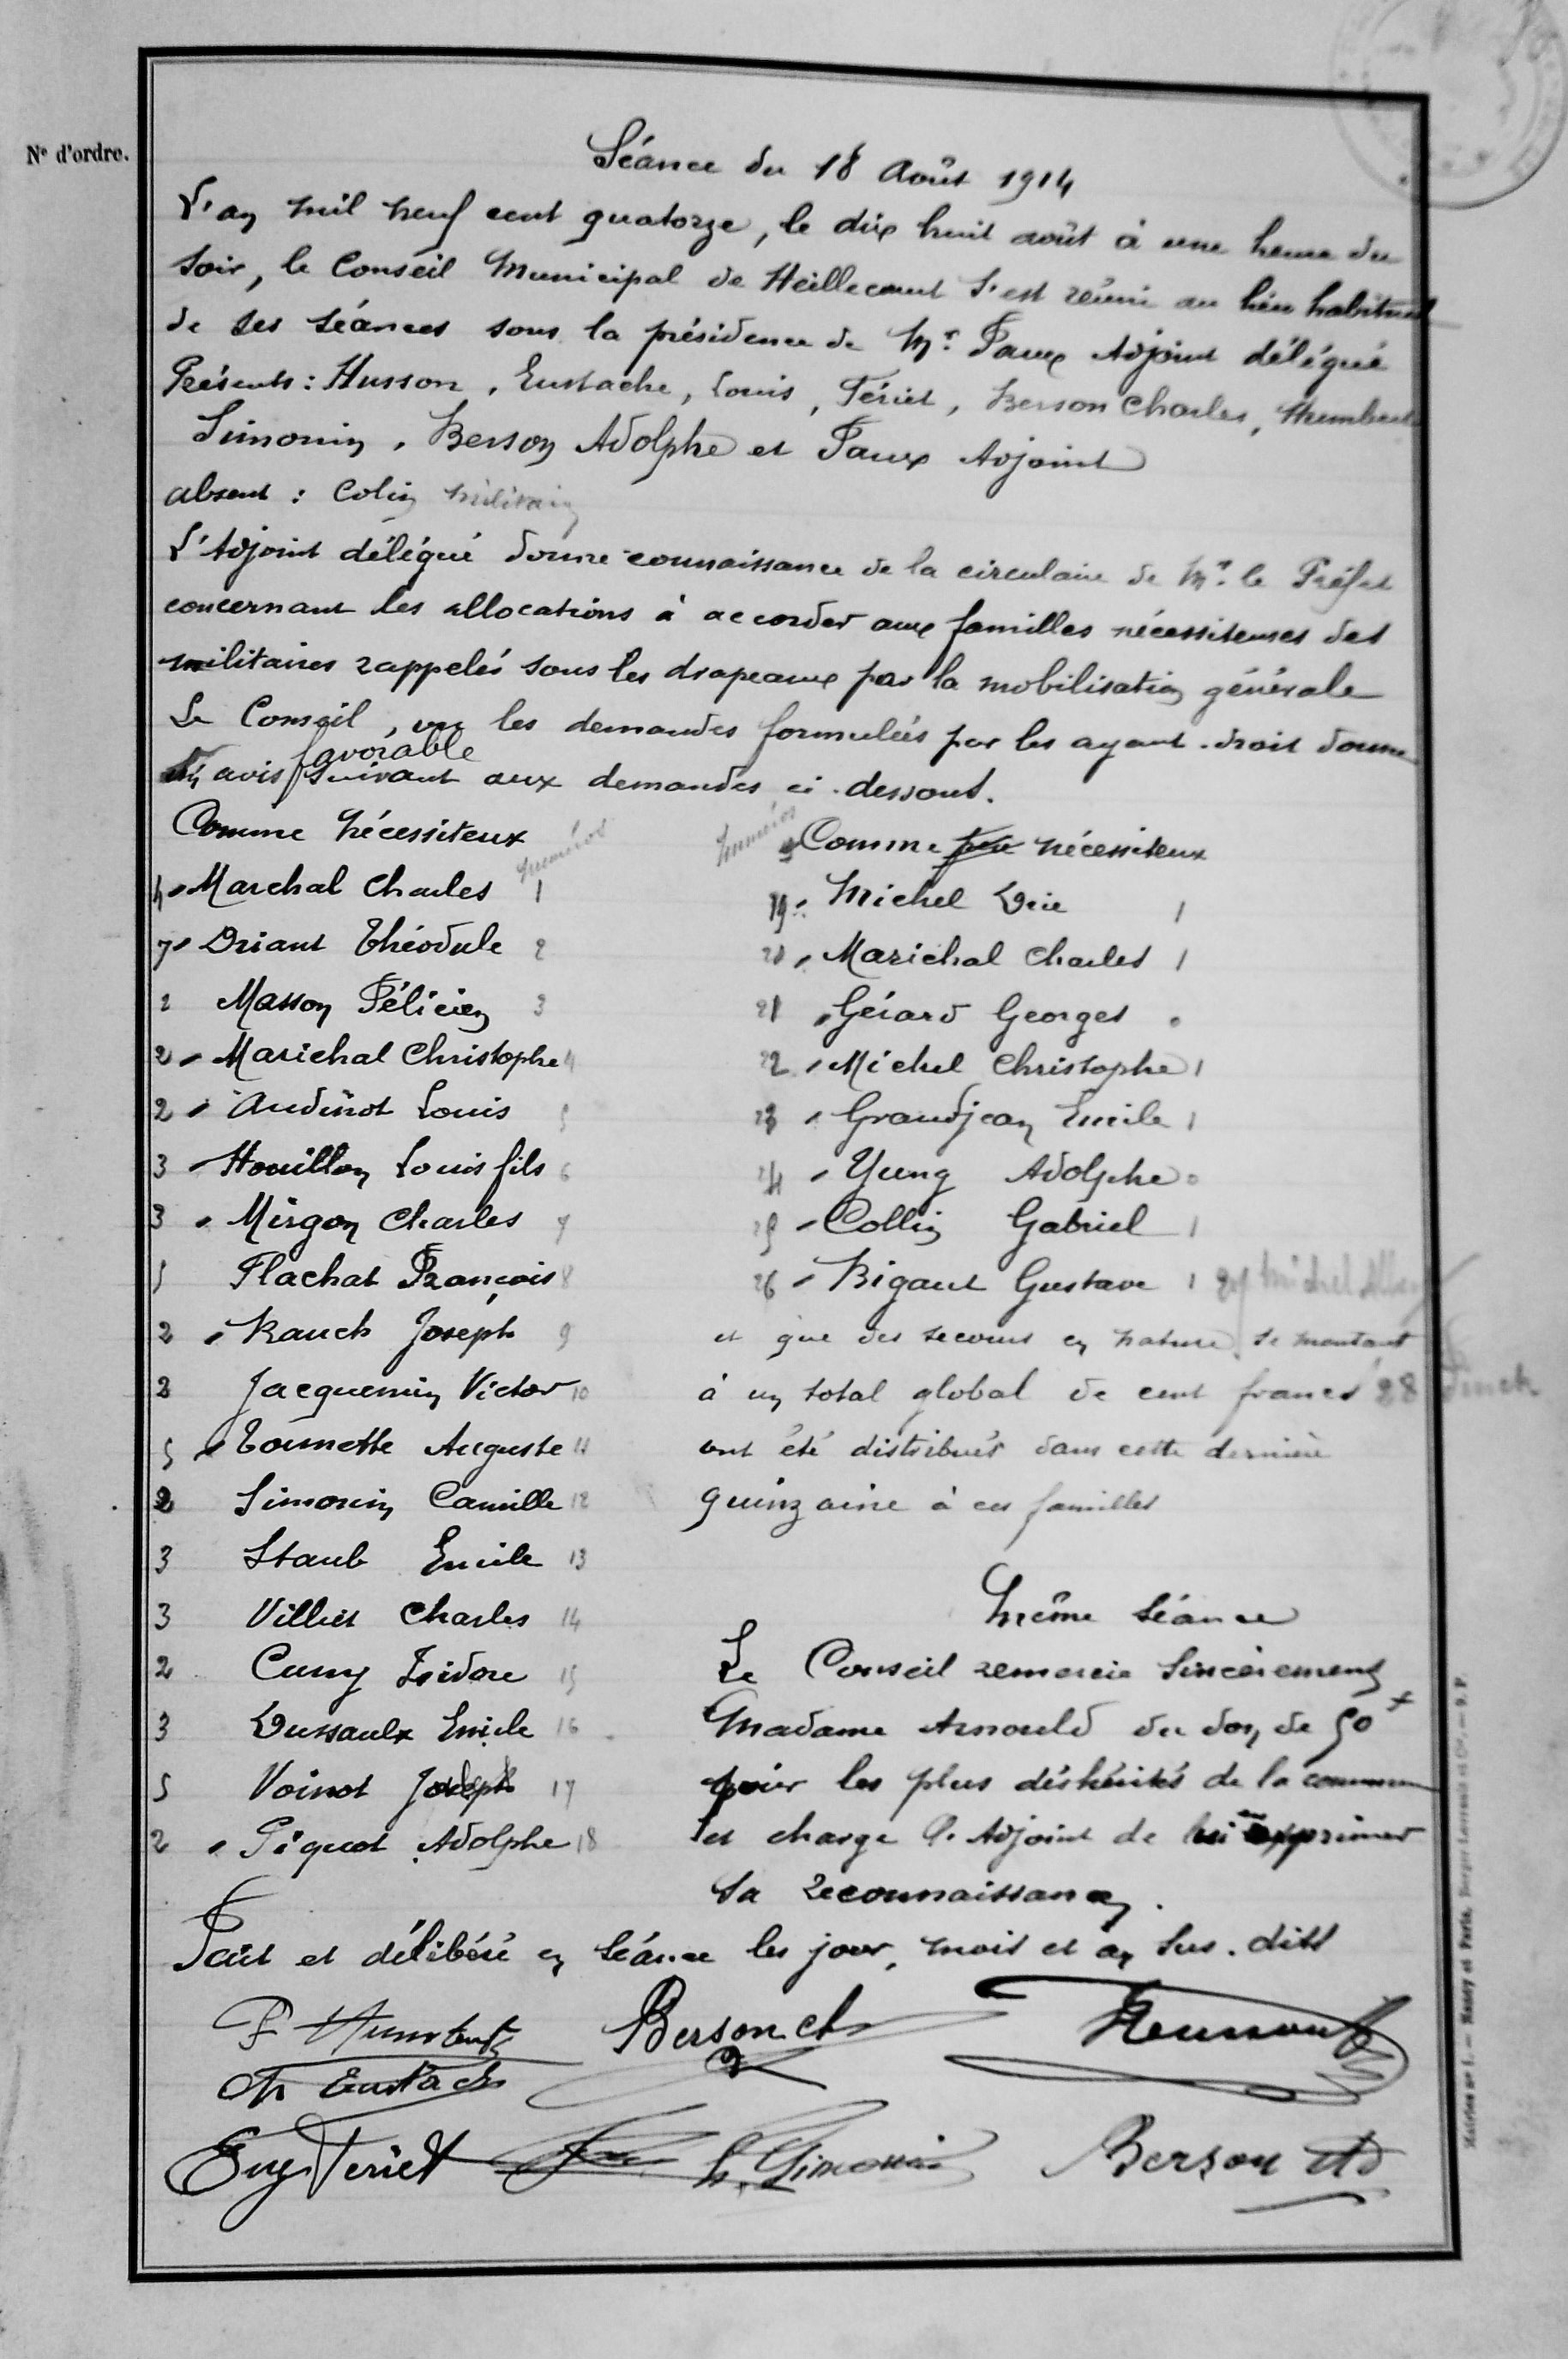 N° d'ordre.
Séance du 18 Août 1914
L'an mil neuf cent quatorze, le dix huit août à une heure du
soir, le Conseil Municipal de Heillecourt s'est réuni au lieu habituel
de ses séances sous la présidence de Mr. Faux Adjoint délégué
Présents : Husson, Eustache, Louis, Fériet, Berson Charles, Humbert
Simonin, Berson Adolphe et Faux Adjoint
absent : Colin militaire
L'Adjoint délégué donne connaissance de la circulaire de Mr. le Préfet
concernant les allocations à accorder aux familles nécessiteuses des
militaires rappelés sous les drapeaux par la mobilisation générale
Le Conseil, vu les demandes formulées par les ayant-droit donne
favorable
un avis suivant aux demandes ci-dessous.
Comme nécessiteux
numéros
4 Marchal Charles 1
7 Driant Théodule 2
2 Masson Félicien 3
2 Marichal Christophe 4
2 Audinot Louis 5
3 Houillon Louis fils 6
3 Mirgon Charles 7
5 Flachat François 8
2 Rauch Joseph 9
2 Jacquemin Victor 10
5 Tournette Auguste 11
2 Simonin Camille 12
3 Staub Emile 13
3 Villiet Charles 14
2 Cuny Isidore 15
3 Dussaulx Emile 16
5 Voinot Joseph 17
2 Piquot Adolphe 18
numéros
Comme peu nécessiteux
19 Michel 1
20 Marichal Charles 1
21 Gérard Georges 0
22 Michel Christophe 1
23 Grandjean Emile 1
24 Yung Adolphe 0
25 Collin Gabriel 1
26 Bigaut Gustave 1 27 Michel
et que des secours en nature se montant
à un total global de cent francs 28
ont été distribués dans cette dernière
quinzaine à ces familles
Même séance
Le Conseil remercie sincèrement
Madame Arnould du don de 50 f
pour les plus déshérités de la commune
et charge l'Adjoint de lui en exprimer
sa reconnaissance.
Fait et délibéré en séance les jour, mois et an sus-dits
F Humbert Berson ch Husson
Ch Eustache
Eug Fériet Simonin Berson Ad
Mairies n° 1. — Nancy et Paris, Berger-Levrault et Cie. — 9. P.